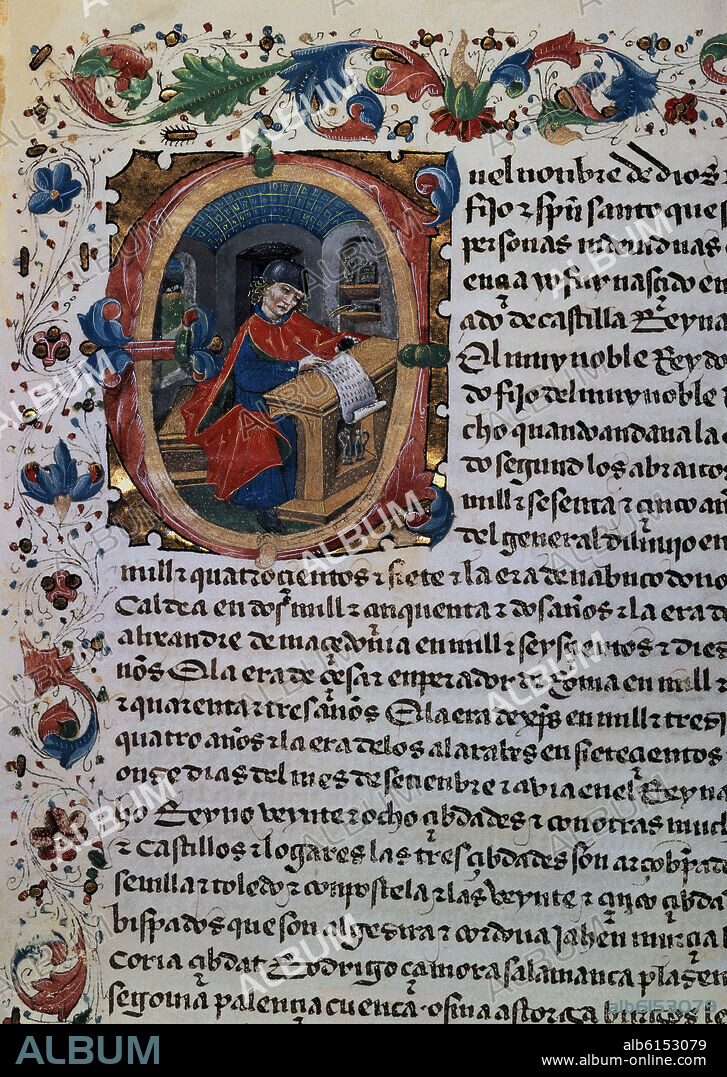 nel nonbre de dios
fijo & spũ santo que s
personas indeuiduas
enga nasçido en
ado de castilla Reyna
El muy noble Rey do
do fijo del muy noble
cho quando andaua la
do segund los abrai
mill & sesenta & çinco an
del general diluuio en
mill & quatroçientos & siete & la era de nabucodono
Caldea en dos mill & çinquenta & dos años & la era d
alixandre de maçedonia en mill & seysçientos & dies
ños E la era de çesar enperador de Roma en mill &
& quarenta & tres años E la era de xp̃s en mill & tresi
quatro años & la era de los alaraues en sieteçientos
onze dias del mes de setienbre & auia en el Reyna
ho Reyno veynte & ocho çibdades & con otras much
& Castillos & logares las tres çibdades son arçobpad
seuilla & toledo & conpostela & las veynte & çinco çibda
bispados que son algesira & cordoua jahen murçia
coria çibdat Rodrigo çamora salamanca plasen
segouia palençia cuenca osma astorga burgos le
ALBUM
alb6153079
www.album-online.com